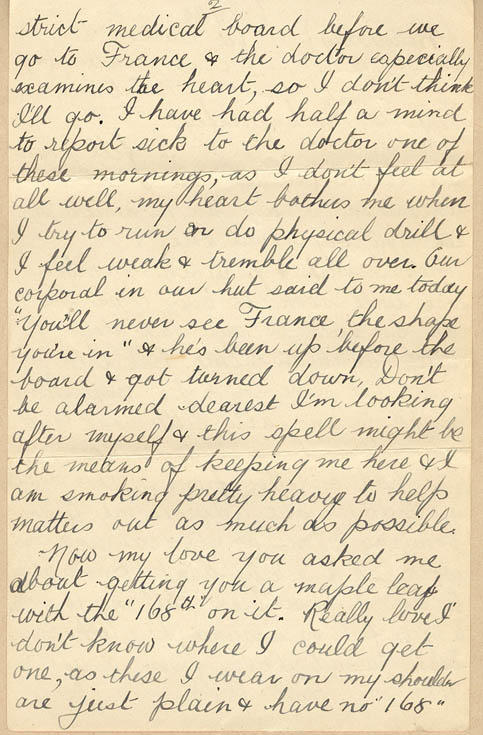 2
strict medical board before we
go to France & the doctor especially
examines the heart, so I don't think
I'll go. I have had half a mind
to report sick to the doctor one of
these mornings, as I don't feel at
all well, my heart bothers me when
I try to run or do physical drill &
I feel weak & tremble all over. Our
corporal in our hut said to me today
"You'll never see France, the shape
you're in" & he's been up before the
board & got turned down, Don't
be alarmed dearest I'm looking
after myself & this spell might be
the means of keeping me here & I
am smoking pretty heavy to help
matters out as much as possible.
Now my love you asked me
about getting you a maple leaf
with the "168th" on it. Really love I
don't know where I could get
one, as these I wear on my shoulder
are just plain & have no "168"